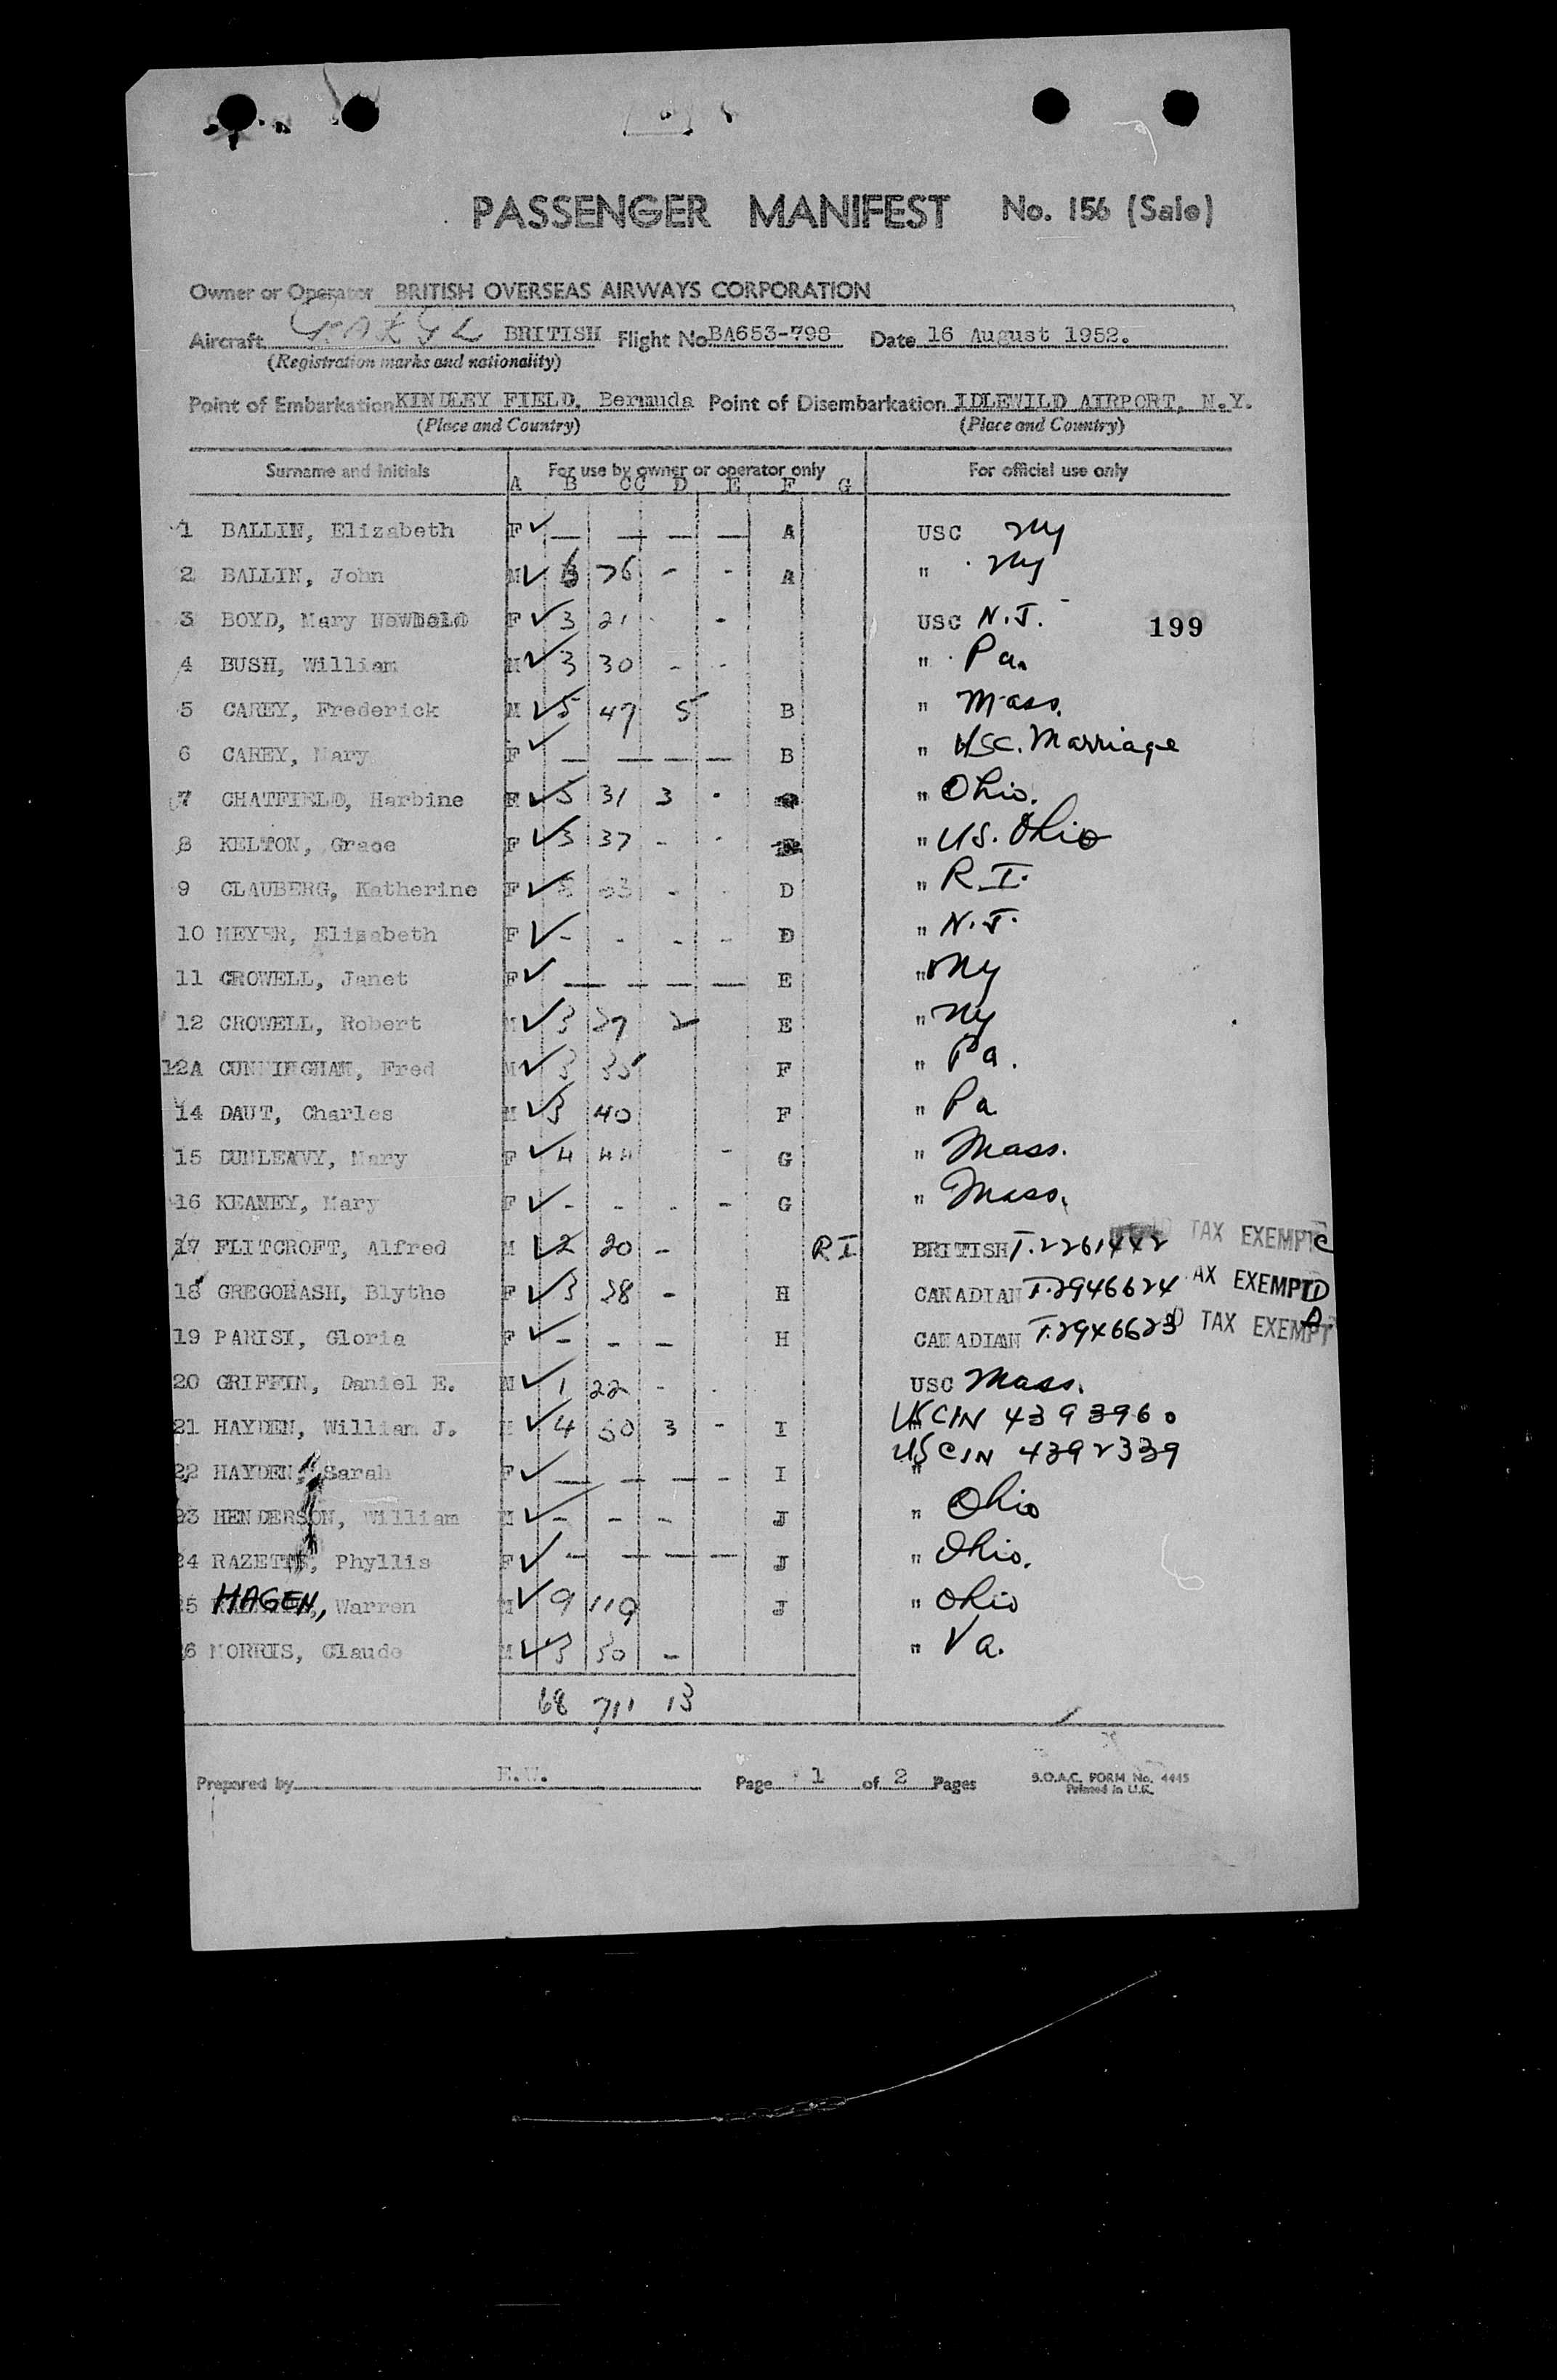 PASSENGER MANIFEST No. 156 (Sale)
Owner or Operator BRITISH OVERSEAS AIRWAYS CORPORATION
Aircraft BRITISH Flight No. BA653-798 Date 16 August 1952.
(Registration marks and nationality)
Point of Embarkation KINDLEY FIELD, Bermuda Point of Disembarkation IDLEWILD AIRPORT, N.Y.
(Place and Country) (Place and Country)
Surname and Initials For use by owner or operator only For official use only
A B CC D E F G
1 BALLIN, Elizabeth F ✓ — — — — A USC NY
2 BALLIN, John M ✓ 6 76 - - A " NY
3 BOYD, Mary F ✓ 3 21 - USC N.J. 199
4 BUSH, William M ✓ 3 30 - - " Pa.
5 CAREY, Frederick M ✓ 5 47 5 B " Mass.
6 CAREY, Mary F ✓ — — — — B " USC. Marriage
7 CHATFIELD, Harbine ✓ 5 31 3 - " Ohio.
8 KELTON, Grace F ✓ 3 37 - - " US. Ohio
9 CLAUBERG, Katherine F ✓ 63 - D " R.I.
10 MEYER, Elizabeth F ✓ - - - - D " N.J.
11 CROWELL, Janet F ✓ — — — — E " NY
12 CROWELL, Robert M ✓ 3 2 E " NY
12A CUNNINGHAM, Fred M ✓ 3 35 F " Pa.
14 DAUT, Charles M ✓ 3 40 F " Pa
15 DUNLEAVY, Mary F ✓ 4 44 - G " Mass.
16 KEANEY, Mary F ✓ - - - - G " Mass.
17 FLITCROFT, Alfred M ✓ 2 20 - R I BRITISH T.2261442 TAX EXEMPT C
18 GREGORASH, Blythe F ✓ 3 38 - H CANADIAN T.2946624 AX EXEMPT D
19 PARISI, Gloria F ✓ - - - H CANADIAN T.2946623 D TAX EXEMPT A
20 GRIFFIN, Daniel E. M ✓ 1 22 - USC Mass.
21 HAYDEN, William J. M ✓ 4 50 3 - I USCIN 4393960
22 HAYDEN, Sarah F ✓ — — — - I " USCIN 4392339
23 HENDERSON, William M ✓ - - - J " Ohio
24 Phyllis F ✓ — — — — J " Ohio.
25 HAGEN, Warren M ✓ 9 119 J " Ohio
26 MORRIS, Claude M ✓ 3 30 - " Va.
68 711 13
Prepared by Page 1 of 2 Pages B.O.A.C. FORM No. 4445
Printed in U.K.